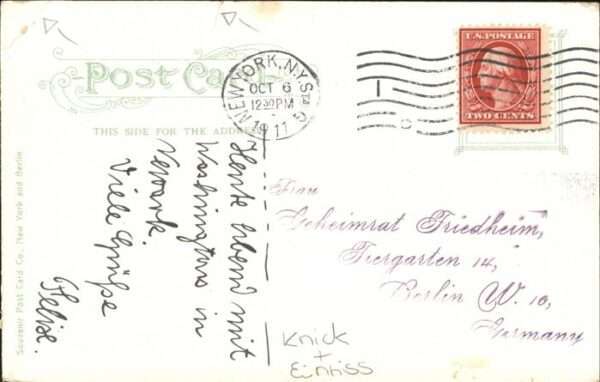 Post Card
THIS SIDE FOR THE ADDRESS
NEW YORK, N.Y. STA. G
OCT 6
12 30 PM
1911
U.S. POSTAGE
TWO CENTS
1
G
Heute Abend mit
Washingtons in
Newark.
Viele Grüße
Felix.
Frau
Geheimrat Friedheim,
Tiergarten 14,
Berlin W. 10,
Germany
Knick
+
Einriss
Souvenir Post Card Co., New York and Berlin